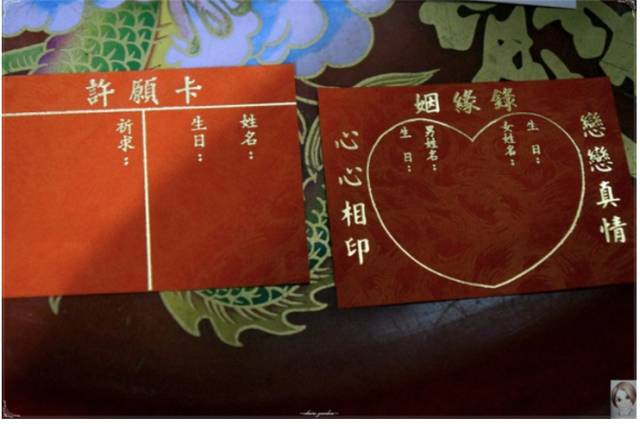 許願卡
姓名：
生日：
祈求：
姻緣錄
戀戀真情
生日：
女姓名：
男姓名：
生日：
心心相印